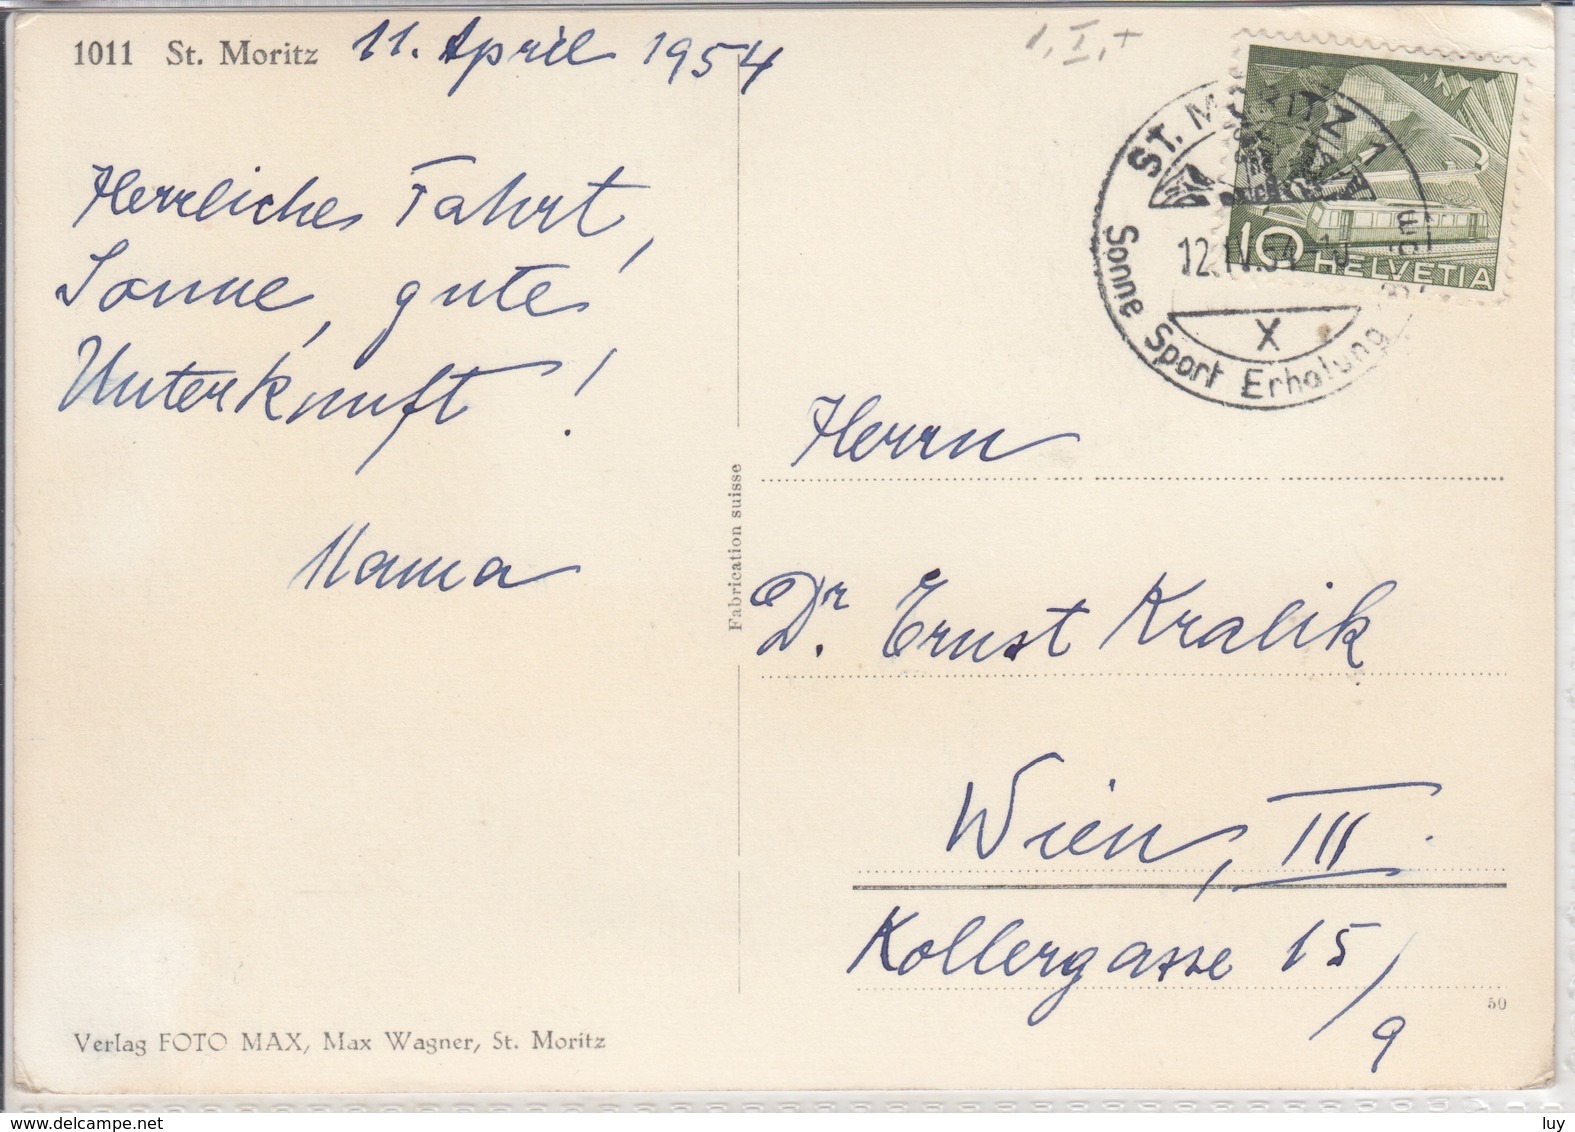 1011 St. Moritz 11. April 1954
Herrliche Fahrt,
Sonne, gute
Unterkunft!
Mama
Fabrication suisse
Verlag FOTO MAX, Max Wagner, St. Moritz
1, I, +
ST. MORITZ 1
12.IV.54
HELVETIA
10
X
Sonne Sport Erholung
Herrn
Dr. Ernst Kralik
Wien, III.
Kollergasse 15/9
50
www.delcampe.net
luy